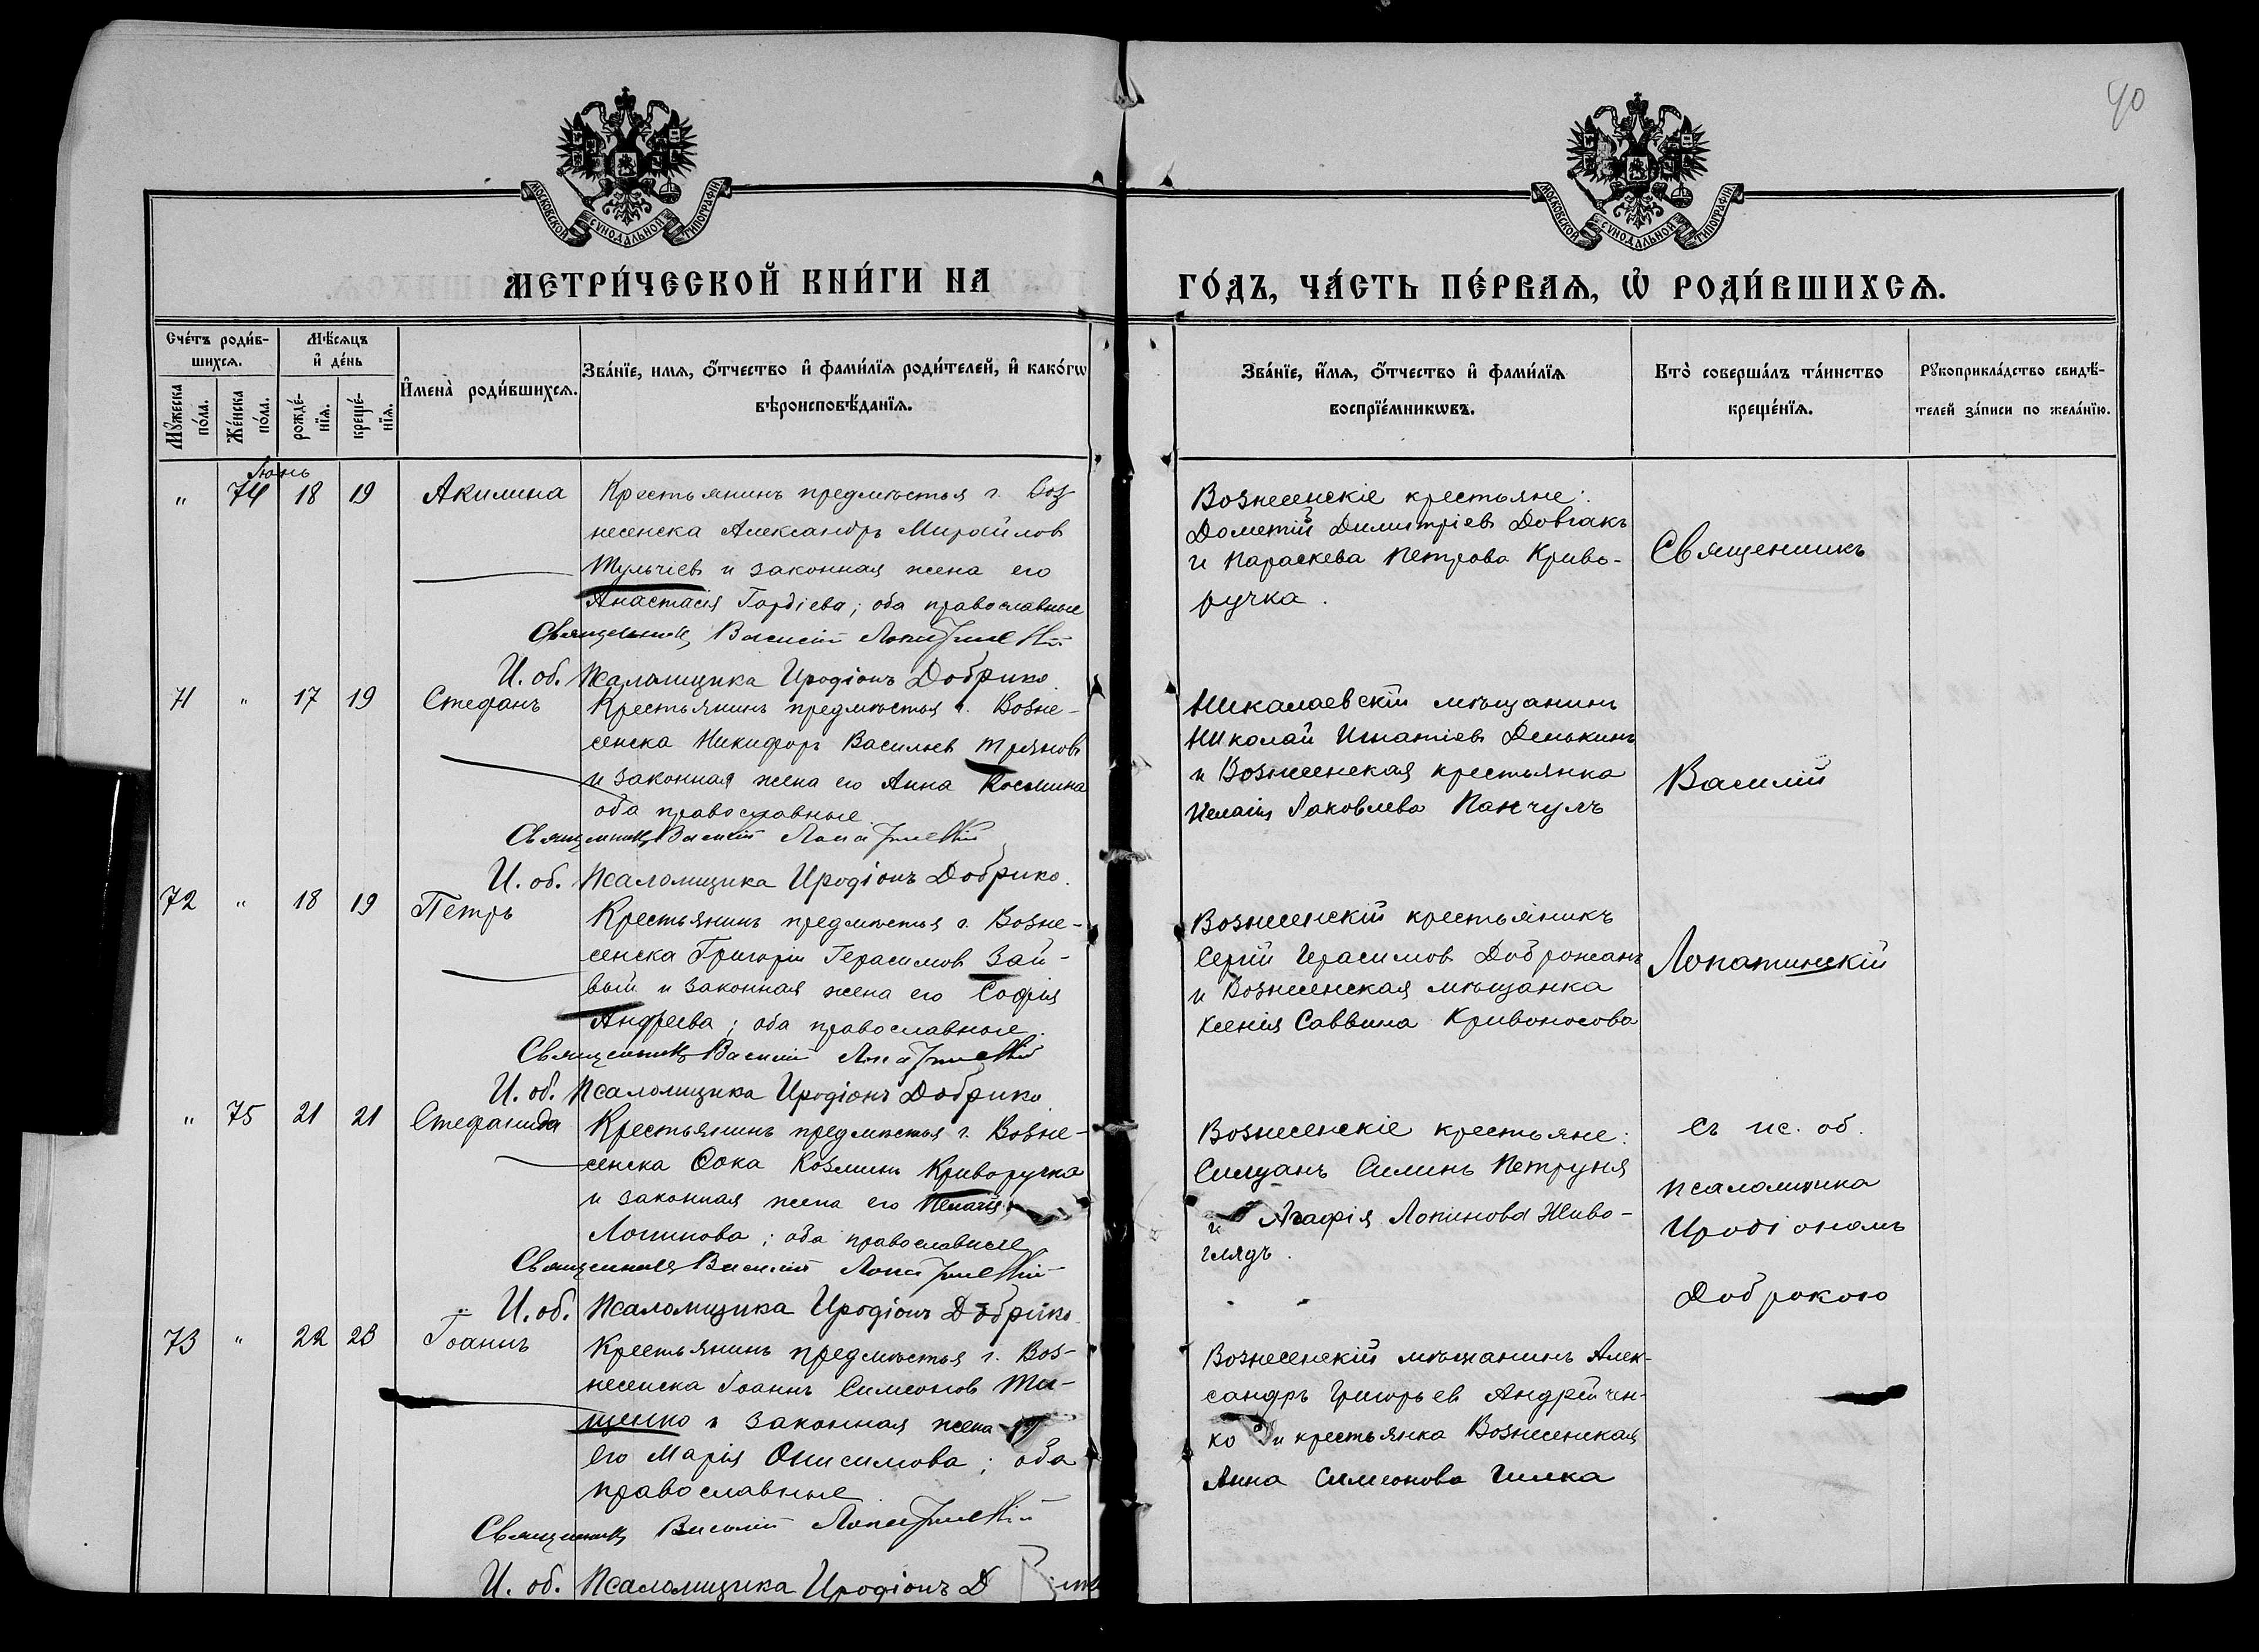 40
МОСКОВСКОЙ СѴНОДАЛЬНОЙ ТИПОГРАФІИ.
МОСКОВСКОЙ СѴНОДАЛЬНОЙ ТИПОГРАФІИ.
МЕТРИ́ЧЕСКОЙ КНИ́ГИ НА
ГО́ДЪ, ЧА́СТЬ ПЕ́РВАѦ, Ѡ҆ РОДИ́ВШИХСѦ.
Сче́тъ роди́в-
шихсѧ.
Мꙋ́жеска
по́ла.
Же́нска
по́ла.
Мѣ́сѧцъ
и҆ де́нь
рожде́-
нїѧ.
креще́-
нїѧ.
И҆мена̀ роди́вшихсѧ.
Зва́нїе, имѧ, ѻ҆́тчество и҆ фами́лїѧ роди́телей, и҆ како́гѡ
вѣроисповѣ́данїѧ.
Зва́нїе, и҆́мѧ, ѻ҆́тчество и҆ фами́лїѧ
воспрїе́мникѡвъ.
Кто̀ соверша́лъ та́инство
креще́нїѧ.
Рꙋкоприкла́дство свидѣ́-
телей за́писи по жела́нїю.
Іюнь
" 74 18 19 Акилина
Крестьянинъ предмѣстья г. Воз
несенска Александръ Михайлов
Тульчіев и законная жена его
Анастасія Гордіева; оба православные
Священникъ Василій Лопатинскій
И. об. Псаломщика Иродіонъ Добрико.
Вознесенскіе крестьяне:
Дометій Димитріев Довгакъ
и Параскева Петрова Криво-
ручка.
71 " 17 19 Стефанъ
Крестьянинъ предмѣстья г. Возне-
сенска Никифоръ Васильев Тряновъ
и законная жена его Анна Космина
оба православные.
Священникъ Василій Лопатинскій
И. об. Псаломщика Иродіонъ Добрико.
Николаевскій мѣщанинъ
Николай Игнатіев Денькинъ
и Вознесенская крестьянка
Пелагія Іаковлева Панчулъ
72 " 18 19 Петръ
Крестьянинъ предмѣстья г. Возне-
сенска Григорій Герасимов Зай-
вый и законная жена его Софія
Андреева; оба православные.
Священникъ Василій Лопатинскій
И. об. Псаломщика Иродіонъ Добрико
Вознесенскій крестьянинъ
Сергій Герасимов Доброжанъ
и Вознесенская мѣщанка
Ксенія Саввина Кривоносова
" 75 21 21 Стефанида
Крестьянинъ предмѣстья г. Возне-
сенска Фока Козминъ Криворучка
и законная жена его Пелагія
Логинова; оба православные
Священникъ Василій Лопатинскій
И. об. Псаломщика Иродіонъ Добрико.
Вознесенскіе крестьяне:
Силуанъ Силинъ Петруня
и Агафія Логинова Живо-
глядъ.
73 " 22 23 Іоаннъ
Крестьянинъ предмѣстья г. Воз-
несенска Іоаннъ Симеонов Ти-
щенко и законная жена
его Марія Онисимова; оба
православные
Священникъ Василій Лопатинскій
И. об. Псаломщика Иродіонъ
Вознесенскій мѣщанинъ Алек-
сандръ Григорьев Андрійчен-
ко и крестьянка Вознесенская
Анна Симеонова Гилка
Священникъ
Василій
Лопатинскій
съ ис. об.
псаломщика
Иродіономъ
Доброкою